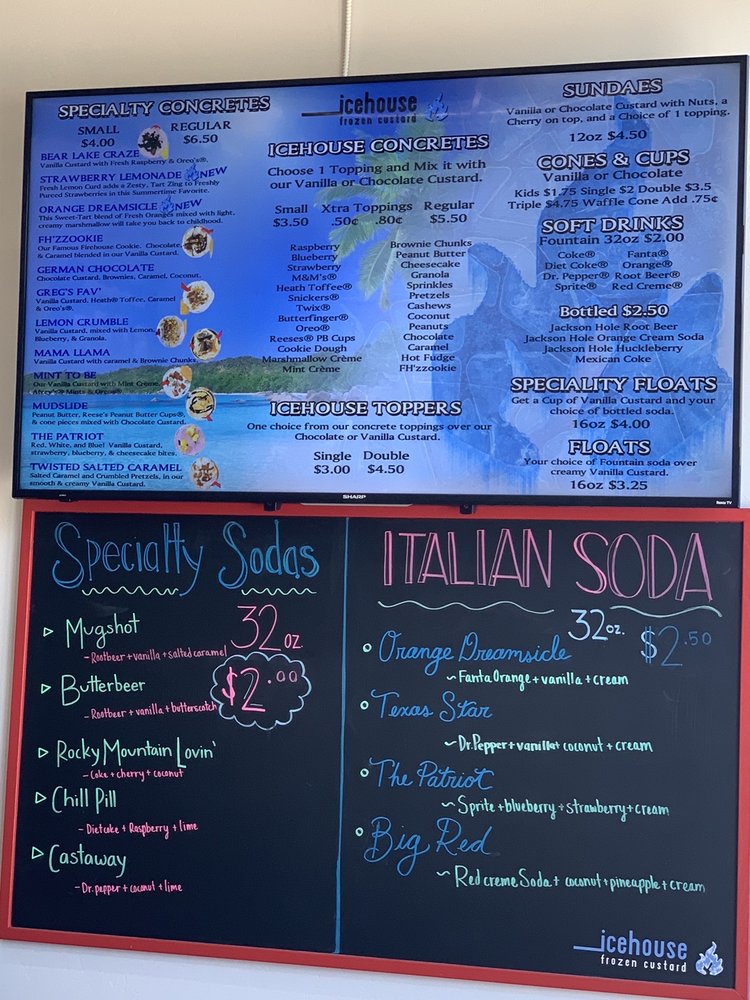 SPECIALTY CONCRETES
SMALL REGULAR
$4.00 $6.50
BEAR LAKE CRAZE
Vanilla Custard with Fresh Raspberry & Oreo's®.
STRAWBERRY LEMONADE NEW
Fresh Lemon Curd adds a Zesty, Tart Zing to Freshly
Pureed Strawberries in this Summertime Favorite.
ORANGE DREAMSICLE NEW
This Sweet-Tart blend of Fresh Oranges mixed with light,
creamy marshmallow will take you back to childhood.
FH'ZZOOKIE
Our Famous Firehouse Cookie, Chocolate,
& Caramel blended in our Vanilla Custard.
GERMAN CHOCOLATE
Chocolate Custard, Brownies, Caramel, Coconut.
GREG'S FAV'
Vanilla Custard, Heath® Toffee, Caramel
& Oreo's®.
LEMON CRUMBLE
Vanilla Custard, mixed with Lemon,
Blueberry, & Granola.
MAMA LLAMA
Vanilla Custard with caramel & Brownie Chunks
MINT TO BE
Our Vanilla Custard with Mint Crème,
Mints & Oreos®.
MUDSLIDE
Peanut Butter, Reese's Peanut Butter Cups®,
& cone pieces mixed with Chocolate Custard.
THE PATRIOT
Red, White, and Blue! Vanilla Custard,
strawberry, blueberry, & cheesecake bites.
TWISTED SALTED CARAMEL
Salted Caramel and Crumbled Pretzels, in our
smooth & creamy Vanilla Custard.
icehouse
frozen custard
ICEHOUSE CONCRETES
Choose 1 Topping and Mix it with
our Vanilla or Chocolate Custard.
Small Xtra Toppings Regular
$3.50 .50¢ .80¢ $5.50
Raspberry
Blueberry
Strawberry
M&M's®
Heath Toffee®
Snickers®
Twix®
Butterfinger®
Oreo®
Reeses® PB Cups
Cookie Dough
Marshmallow Crème
Mint Crème
Brownie Chunks
Peanut Butter
Cheesecake
Granola
Sprinkles
Pretzels
Cashews
Coconut
Peanuts
Chocolate
Caramel
Hot Fudge
FH'zzookie
ICEHOUSE TOPPERS
One choice from our concrete toppings over our
Chocolate or Vanilla Custard.
Single Double
$3.00 $4.50
SUNDAES
Vanilla or Chocolate Custard with Nuts, a
Cherry on top, and a Choice of 1 topping.
12oz $4.50
CONES & CUPS
Vanilla or Chocolate
Kids $1.75 Single $2 Double $3.5
Triple $4.75 Waffle Cone Add .75¢
SOFT DRINKS
Fountain 32oz $2.00
Coke® Fanta®
Diet Coke® Orange®
Dr. Pepper® Root Beer®
Sprite® Red Creme®
Bottled $2.50
Jackson Hole Root Beer
Jackson Hole Orange Cream Soda
Jackson Hole Huckleberry
Mexican Coke
SPECIALITY FLOATS
Get a Cup of Vanilla Custard and your
choice of bottled soda.
16oz $4.00
FLOATS
Your choice of Fountain soda over
creamy Vanilla Custard.
16oz $3.25
SHARP
Roku TV
Specialty Sodas
32 oz
$2.00
Mugshot
- Rootbeer + vanilla + salted caramel
Butterbeer
- Rootbeer + vanilla + butterscotch
Rocky Mountain Lovin'
- Coke + cherry + coconut
Chill Pill
- Dietcoke + Raspberry + lime
Castaway
- Dr. pepper + coconut + lime
ITALIAN SODA
32oz. $2.50
Orange Dreamsicle
~ Fanta Orange + vanilla + cream
Texas Star
~ Dr. Pepper + vanilla + coconut + cream
The Patriot
~ Sprite + blueberry + strawberry + cream
Big Red
~ Red creme Soda + coconut + pineapple + cream
icehouse
frozen custard